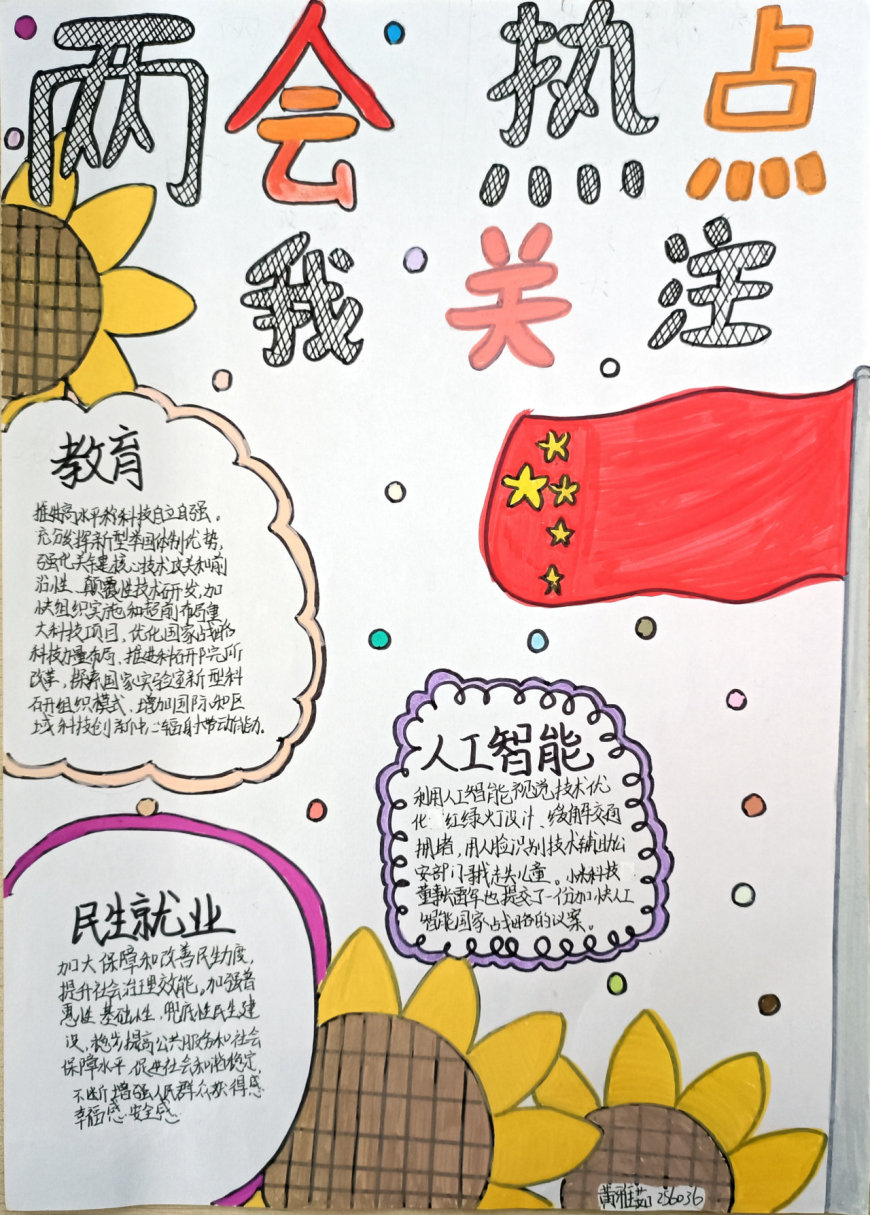 两会热点
我关注
教育
推进高水平科技自立自强。
充分发挥新型举国体制优势,
强化关键核心技术攻关和前
沿性、颠覆性技术研发,加
快组织实施和超前布局重
大科技项目,优化国家战略
科技力量布局、推进科研院所
改革,探索国家实验室新型科
研组织模式、增加国际和区
域科技创新中心辐射带动能力.
人工智能
利用人工智能视觉技术优
化 红绿灯设计、缓解交通
拥堵,用人脸识别技术辅助公
安部门我走失儿童。小米科技
董事长雷军也提交了一份加快人工
智能国家战略的议案。
民生就业
加大保障和改善民生力度,
提升社会治理效能,加强普
惠性 基础性、兜底性民生建
设,稳步提高公共服务和社会
保障水平,促进社会和谐稳定,
不断增强人民群众获得感
幸福感 安全感
黄雅茹 256036